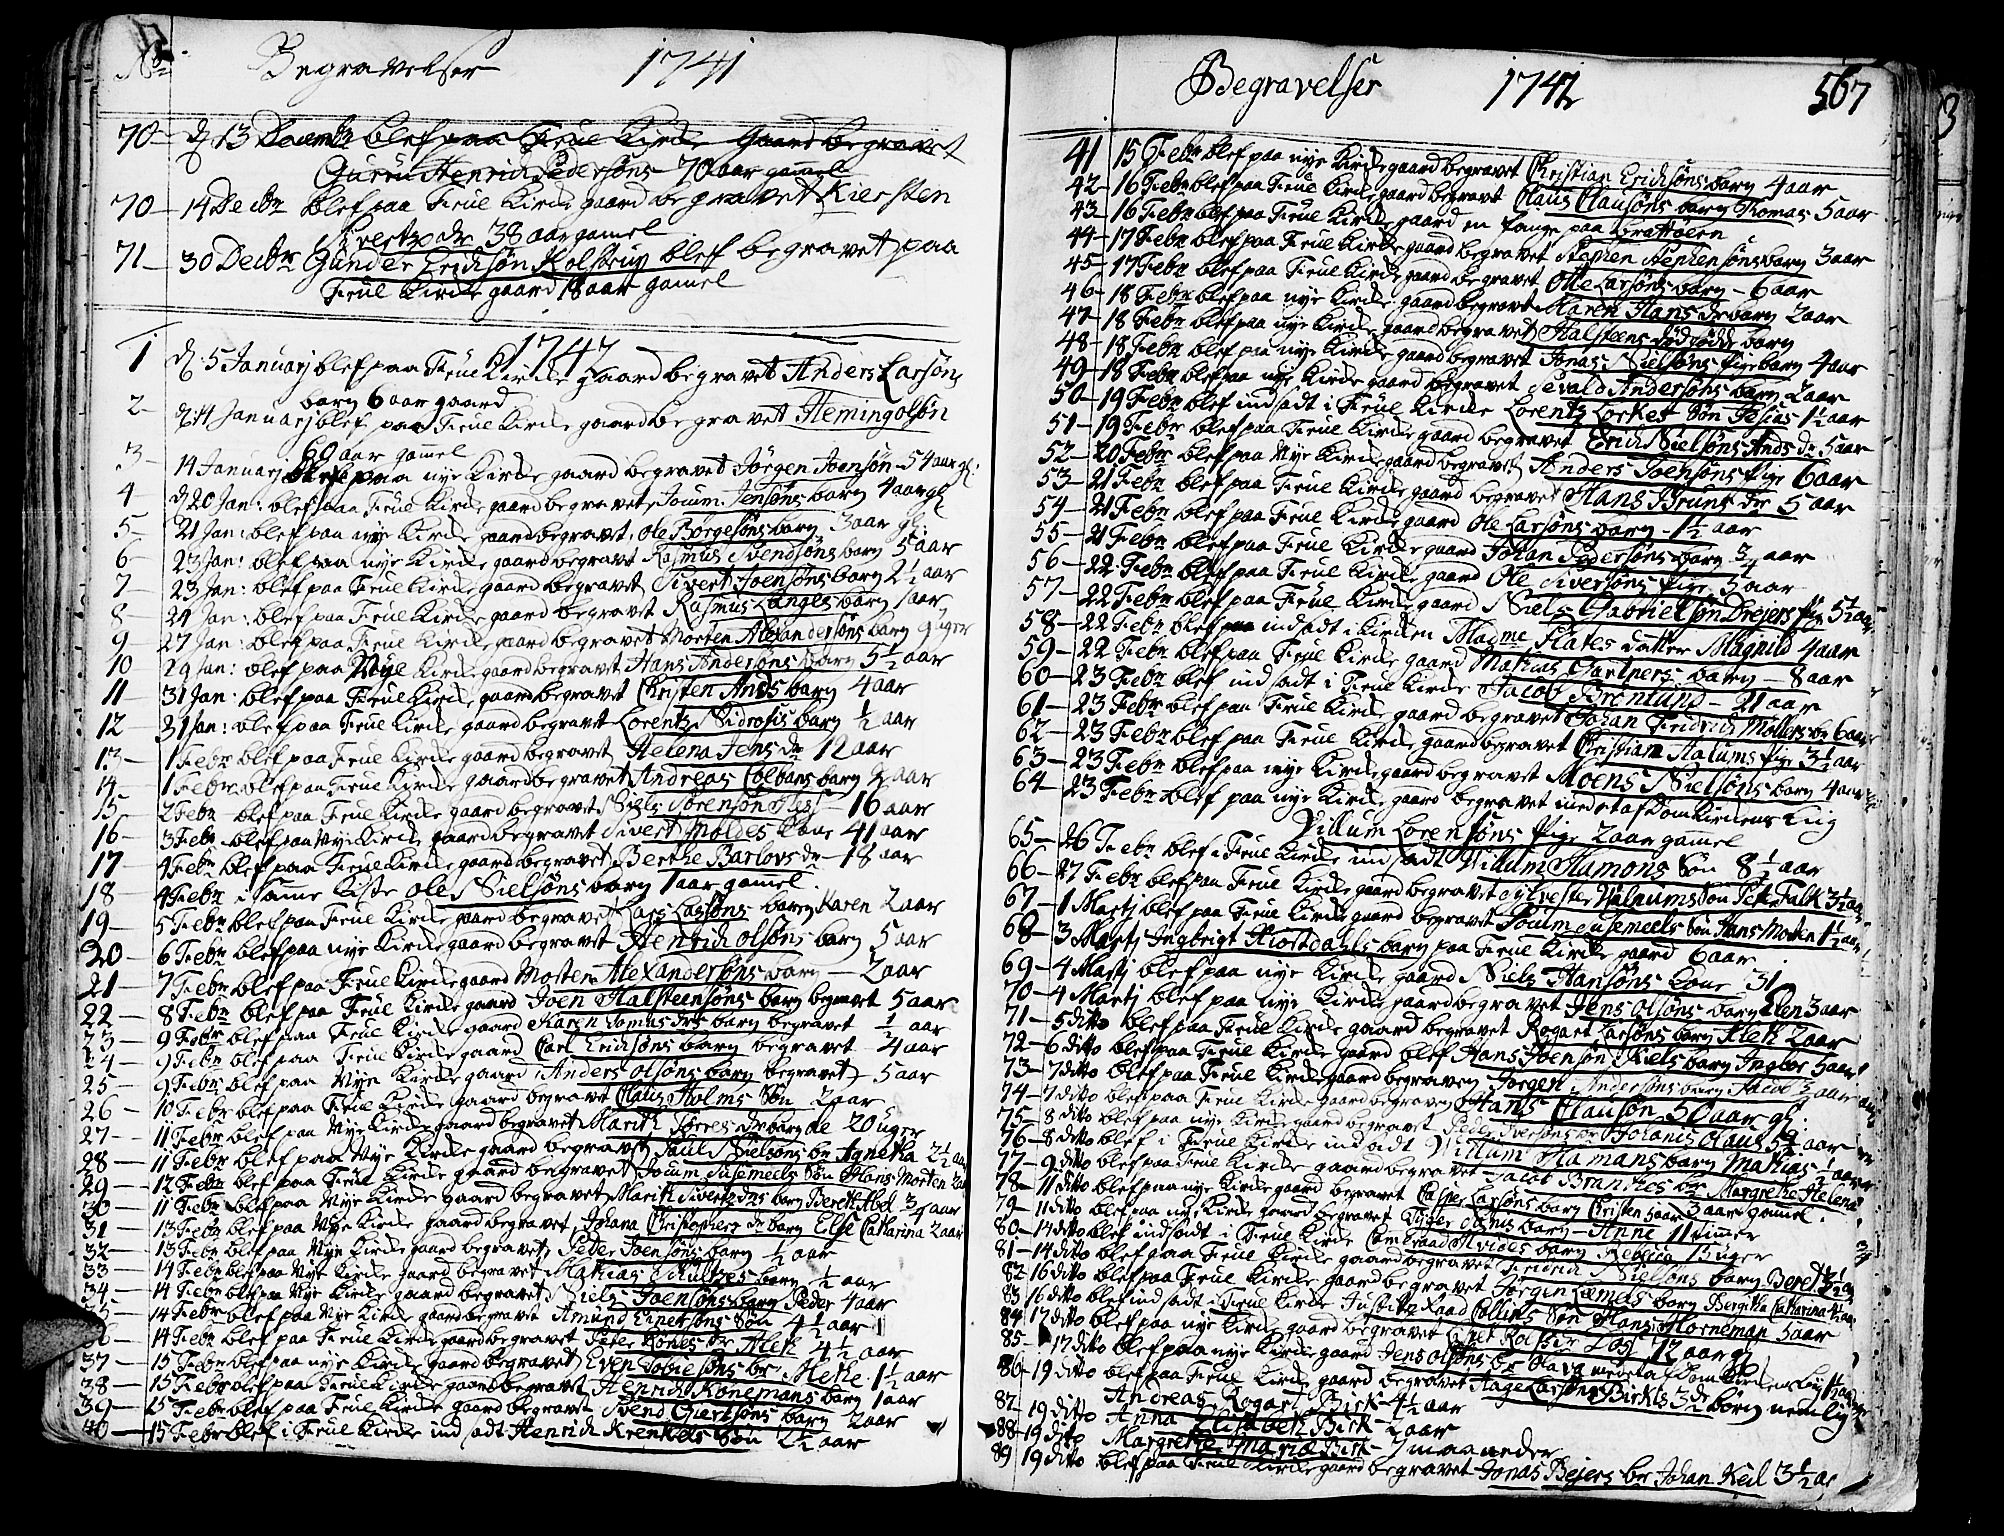 No Begravelser 1741
70 - d 13 Decembr blef paa Frue Kirche Gaard begravet
Guru Henrich Pedersøns - 70 aar gammel
70 - 14 Decbr blef paa Frue Kirche gaard begravet Kiersten
Sivertz dr 38 aar gamel
71 - 30 Decbr Gunder Erichsøn Holstrup blef begravet paa
Frue Kirche gaard 18 aar gamel
1742
1 d 5 Januarj blef paa Frue Kirche gaard begravet Anders Larsøns
barn 6 aar gaard
2 - d 14 Januarj blef paa Frue Kirche gaard begravet Flemingolsøn
69 aar gamel
3 - 14 Januarj blef paa nye Kirche gaard begravet Jørgen Joensøn - 54 aar gl:
4 - d 20 Jan: blef paa Frue Kirche gaard begravet Joum Jensøns barn 4 aar gl
5 - 21 Jan: blef paa nye Kirche gaard begravet Ole Borgesøns barn 3 aar gl:
6 - 23 Jan: blef paa nye Kirche gaard begravet Rasmus Svendsøns barn 5 aar
7 - 23 Jan: blef paa Frue Kirche gaard begravet Sivert Joensøns barn 2½ aar
8 - 24 Jan: blef paa Frue Kirche gaard begravet Rasmus Langes barn 1 aar
9 - 27 Jan: blef paa Frue Kirche gaard begravet Morten Alexandersøns barn 9 uger
10 29 Jan: blef paa Nye Kirche gaard begravet Hans Andersøns barn 5½ aar
11 31 Jan: blef paa Frue Kirche gaard begravet Christen Ands barn 4 aar
12 - 31 Jan: blef paa Frue Kirche gaard begravet Lorentz Nidrosis barn ½ aar
13 - 1 Febr blef paa Frue Kirche gaard begravet Helena Jens dr 12 aar
14 - 1 Febr blef paa Frue Kirche gaard begravet Andreas Colbans barn 2 aar
15 2 Febr blef paa Frue Kirche gaard begravet Niels Sørensøn - 16 aar
16 - 3 Febr blef paa Nye Kirche gaard begravet Sivert Moldes Kone 41 aar
17 4 Febr blef paa Frue Kirche gaard begravet Berthe Barlovs dr - 18 aar
18 - 4 Febr i samme Kiste Ole Nielsøns barn 1 aar gamel.
19 - 5 Febr blef paa Frue Kirche gaard begravet Lars Larsøns barn Karen 2 aar
20 - 6 Febr blef paa nye Kirche gaard begravet Henrich olsøns barn 5 aar
21 - 7 Febr blef paa Frue Kirche gaard Morten Alexandersøns barn - 2 aar
22 - 8 Febr blef paa Frue Kirche gaard Joen Halsteensøns barn begravet 5 aar
23 - 9 Febr blef paa Frue Kirche gaard Karen Tomas drs barn begravet ½ aar
24 - 9 Febr blef paa Frue Kirche gaard Carl Erichsøns barn begravet 4 aar
25 - 9 Febr blef paa Nye Kirche gaard Anders olsøns barn begravet 5 aar
26 - 10 Febr blef paa Frue Kirche gaard begravet Claus Holms Søn 2 aar
27 - 11 Febr blef paa Nye Kirche gaard begravet Marith Sørres dr barn de 20 uger
28 - 11 Febr blef paa Nye Kirche gaard begravet Paul Nielsøns br Agnetha 2½ aar
29 - 12 Febr blef paa Frue Kirche gaard begravet Joum Jusemeels Søn Hans Morten 2 aar
30 - 11 Febr blef paa Nye Kirche gaard begravet Marith Sivertz drs barn Bereth Abel ¾ aar
31 13 Febr blef paa Nye Kirche gaard begravet Johana Christophers dr barn Else Catharina 2 aar
32 - 13 Febr blef paa Nye Kirche gaard begravet Peder Joensøns barn ½ aar
33 - 14 Febr blef paa Nye Kirche gaard begravet Mathias Schultzes barn ½ aar
34 - 14 Febr blef paa Nye Kirche gaard begravet Niels Joensøns barn Peder 4 aar
14 Febr blef paa Nye Kirche gaard begravet Amund Einersøns Søn 4½ aar
14 Febr blef paa Frue Kirche gaard begravet Peter Kones br Aleth 4½ aar
37 - 15 Febr blef paa nye Kirche gaard begravet Even Tobiesøns br: Mette 1½ aar
38 - 15 Febr blef paa Frue Kirche gaard begravet Henrich Konemans barn 1 aar
39 - 15 Febr blef paa Frue Kirche gaard begravet Svend Giertsøns barn 2 aar
40 - 15 Febr blef i Frue Kirche indsadt Henrich Krenkels Søn 2½ aar
Begravelser 1742 567
41 15 Febr blef paa nye Kirche gaard begravet Christian Erichsøns barn 4 aar
42 - 16 Febr blef paa Frue Kirche gaard begravet Claus Clausøns barn Thomas 5 aar
43 - 16 Febr blef paa Frue Kirche gaard en fange paa Grattøen
44 - 17 Febr blef paa Frue Kirche gaard begravet Stephen Stephensøns barn 3 aar
45 - 17 Febr blef paa Frue Kirche gaard begravet Ole Larsøns barn - 6 aar
46 - 18 Febr blef paa nye Kirche gaard begravet Maren Hans dr barn 2 aar
47 - 18 Febr blef paa nye Kirche gaard begravet Halsteens dødfødde barn
48 - 18 Febr blef paa nye Kirche gaard begravet Jonas Nielsøns pige barn 4 aar
49 - 18 Febr blef paa nye Kirche gaard begravet Sevald Andersøns barn 2 aar
50 - 19 Febr blef indsadt i Frue Kirche Lorentz Lorkes Søn Jesias 1½ aar
51 - 19 Febr blef paa Frue Kirche gaard begravet Erich Nielsøns Ands dr 5 aar
52 - 20 Febr blef paa Nye Kirche gaard begravet Anders Joensøns pige 6 aar
53 - 21 Febr blef paa Frue Kirche gaard begravet Hans Bruns dr 5 aar
54 - 21 Febr blef paa Frue Kirche gaard Ole Larsøns barn - 1½ aar
55 - 21 Febr blef paa Frue Kirche gaard Johan Pedersøns barn ¾ aar
56 - 22 Febr blef paa Frue Kirche gaard Ole Siversøns pige 5 aar
57 - 22 Febr blef paa Frue Kirche gaard Niels Gabrielsøn Drejers pige 5½ aar
58 - 22 Febr blef indsadt i Kirchen Madme Flates datter Magnild 4 aar
59 - 22 Febr blef paa Frue Kirche gaard Mathias Gartners barn - 8 aar
60 - 23 Febr blef indsadt i Frue Kirche Jacob Brentlund - 21 aar
61 - 23 Febr blef paa Frue Kirche gaard begravet Johan Fridrich Møllers br 6 aar
62 - 23 Febr blef paa Frue Kirche gaard begravet Christian Hatums pige 3½ aar
63 - 23 Febr blef paa nye Kirche gaard begravet Moens Nielsøns barn 4 aar
64 - 23 Febr blef paa nye Kirche gaard begravet med et af Domkirchens Liig
Villum Lorensøns pige 2 aar gamel
65 - 26 Febr blef i Frue Kirche indsadt Villum Hamons Søn 8½ aar
66 - 27 Febr blef paa Frue Kirche gaard begravet Sylvester Valnums Søn Peter Falk 3½ aar
67 - 1 Martj blef paa Frue Kirche gaard begravet Joum Jusemeels Søn Hans Morten 1½ aar
68 - 3 Martj Ingbrigt Hiortdahls barn paa Frue Kirche gaard 6 aar
69 - 4 Martj blef paa nye Kirche gaard Niels Hansøns Kone 31
70 - 4 Martj blef paa nye Kirche gaard begravet Jens olsøns barn Elen 3 aar
71 - 5 ditto blef paa Frue Kirche gaard begravet Rogart Larsøns barn Aleth 2 aar
72 - 6 ditto blef paa Frue Kirche gaard blef Hans Joensøn Kiels barn Ingbor 5 aar
73 - 7 ditto blef paa Frue Kirche gaard begraven Jørgen Andersøns barn Jacob 3 aar
74 - 7 ditto blef paa Frue Kirche gaard begraven Hans Clausøn 50 aar gl:
75 - 8 ditto blef paa nye Kirche gaard begravet Peder Iversøns br Johanis Claus 5¾ aar
76 - 8 ditto blef i Frue Kirche indsadt Villum Hamans barn Mathias ½ aar
77 - 9 ditto blef paa Frue Kirche gaard begravet Jacob Branthes br Margrethe Helena
78 - 11 ditto blef paa nye Kirche gaard begravet Casper Larsøns barn Christen 5 aar 3 aar gammel.
79 - 11 ditto blef paa nye Kirche gaard begravet barn - Anne 11 timmer
80 - 14 ditto blef indsadt i Frue Kirche Cam Hvides barn Rebecca 15 uger
81 - 14 ditto blef paa Frue Kirche gaard begravet Fridrich Nielsøns barn Beret 3½ aar
82 16 ditto blef paa Frue Kirche gaard begravet Jørgen Lemels barn Bergitha Catharina 4½ aar
83 16 ditto blef indsadt i Frue Kirche Justitz Raad Collins Søn Hans Horneman 5 aar
84 17 ditto blef paa nye Kirche gaard begravet 12 aar gl
85 - 17 ditto blef paa nye Kirche gaard Jens olsøns br Olava med et af Domkirchens Liig 1½ aar
86 - 19 ditto blef paa Frue Kirche gaard begravet Aage Larsøns Birks 3de børn nemlig
Andreas Rogart Birk - 4½ aar
87 19 ditto Anna Elisabeth Birk - 2 aar
88 - 19 ditto Margrethe Maria Birk - 7 maaneder
89 19 ditto blef paa Frue Kirche gaard begravet Jonas Bejers br Johan Keil 3½ aar